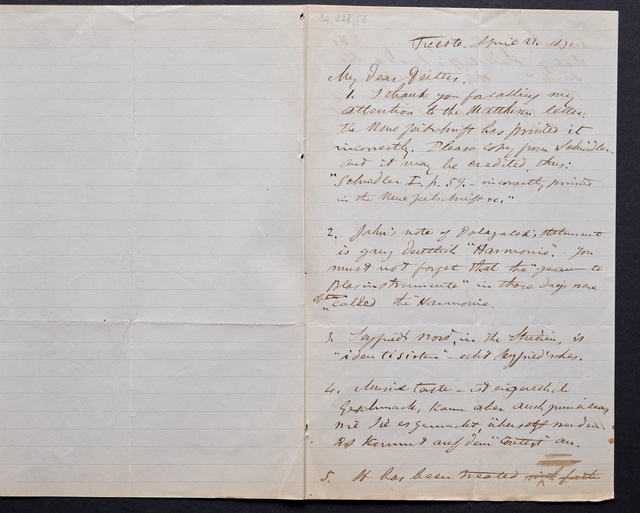 Trieste. April 21. 1871.
My Dear Deiters.
1. I thank you for calling my
attention to the Matthison letter.
the Neue Zeitschrift has printed it
incorrectly. Please copy from Schindler.
and it may be credited, thus:
"Schindler I, p. 59. – incorrectly printed
in the Neue Zeitschrift &c."
2. Jahn's note of Dolezalek's statement
is ganz deutlich "Harmonie". You
must not forget that the "gesammte
Blasinstrumente" in those days were
called the Harmonie.
3. Seyfried's word, in the Studien, is
"identisirten" – echt Seyfried'sches.
4. Musical taste – ist eigentlich
Geschmack, kann aber auch
wie Sie es gemacht, übersetzt werden.
Es kommt auf den "Context" an.
5. It has been treated with